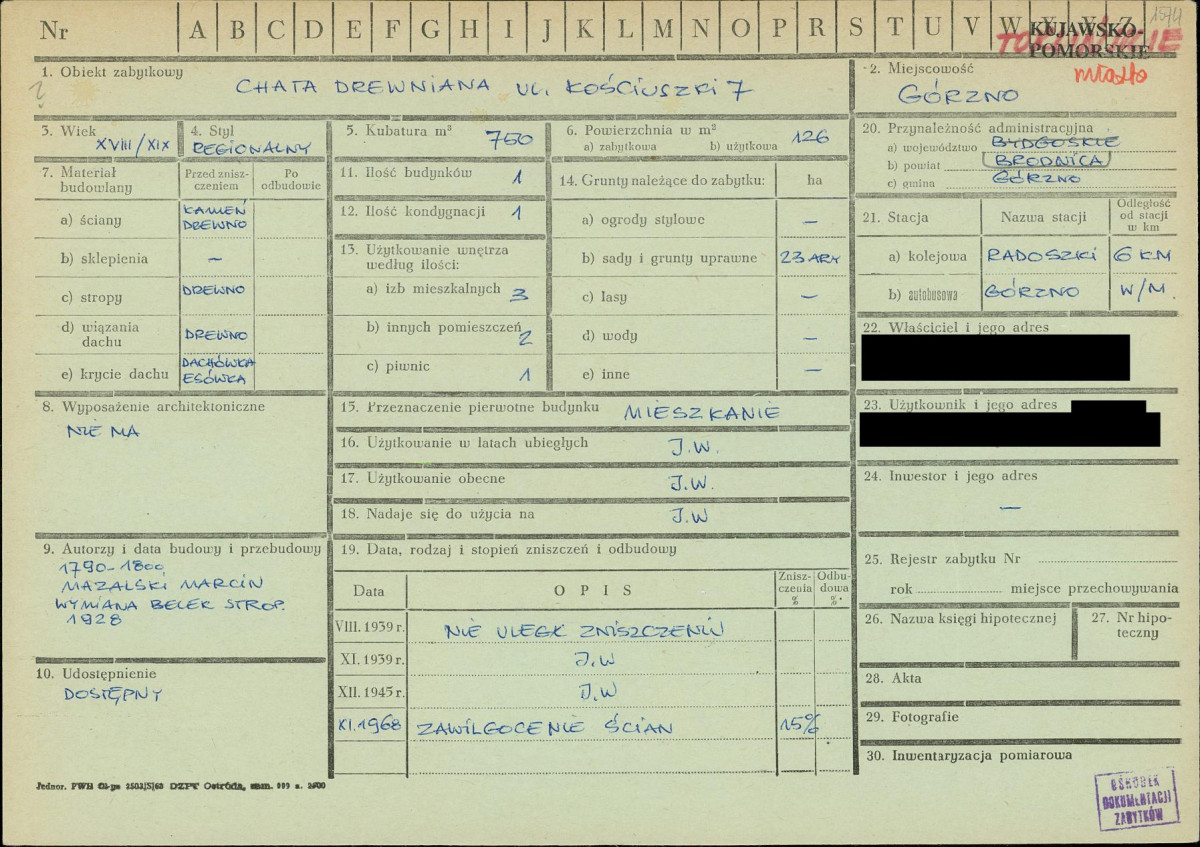 1574
Nr A B C D E F G H I J K L M N O P R S T U V W X Y Z
KUJAWSKO-
POMORSKIE
miasto
1. Obiekt zabytkowy
CHATA DREWNIANA UL. KOŚCIUSZKI 7
2. Miejscowość
GÓRZNO
3. Wiek
XVIII/XIX
4. Styl
REGIONALNY
5. Kubatura m³ 750
6. Powierzchnia w m² 126
a) zabytkowa b) użytkowa
20. Przynależność administracyjna
a) województwo BYDGOSKIE
b) powiat BRODNICA
c) gmina GÓRZNO
7. Materiał budowlany
Przed zniszczeniem
Po odbudowie
a) ściany KAMIEŃ DREWNO
b) sklepienia –
c) stropy DREWNO
d) wiązania dachu DREWNO
e) krycie dachu DACHÓWKA ESÓWKA
11. Ilość budynków 1
12. Ilość kondygnacji 1
13. Użytkowanie wnętrza
według ilości:
a) izb mieszkalnych 3
b) innych pomieszczeń 2
c) piwnic 1
14. Grunty należące do zabytku: ha
a) ogrody stylowe –
b) sady i grunty uprawne 23 ARY
c) lasy –
d) wody –
e) inne –
21. Stacja Nazwa stacji Odległość od stacji w km
a) kolejowa RADOSZKI 6 KM
b) autobusowa GÓRZNO W/M.
22. Właściciel i jego adres
23. Użytkownik i jego adres
24. Inwestor i jego adres
–
8. Wyposażenie architektoniczne
NIE MA
15. Przeznaczenie pierwotne budynku MIESZKANIE
16. Użytkowanie w latach ubiegłych J.W.
17. Użytkowanie obecne J.W.
18. Nadaje się do użycia na J.W
9. Autorzy i data budowy i przebudowy
1790-1800
MAZALSKI MARCIN
WYMIANA BELEK STROP.
1928
10. Udostępnienie
DOSTĘPNY
19. Data, rodzaj i stopień zniszczeń i odbudowy
Data OPIS Zniszczenia % Odbudowa %
VIII. 1939 r. NIE ULEGŁ ZNISZCZENIU
XI. 1939 r. J.W
XII. 1945 r. J.W
XI.1968 ZAWILGOCENIE ŚCIAN 15%
25. Rejestr zabytku Nr
rok miejsce przechowywania
26. Nazwa księgi hipotecznej
27. Nr hipoteczny
28. Akta
29. Fotografie
30. Inwentaryzacja pomiarowa
OŚRODEK
DOKUMENTACJI
ZABYTKÓW